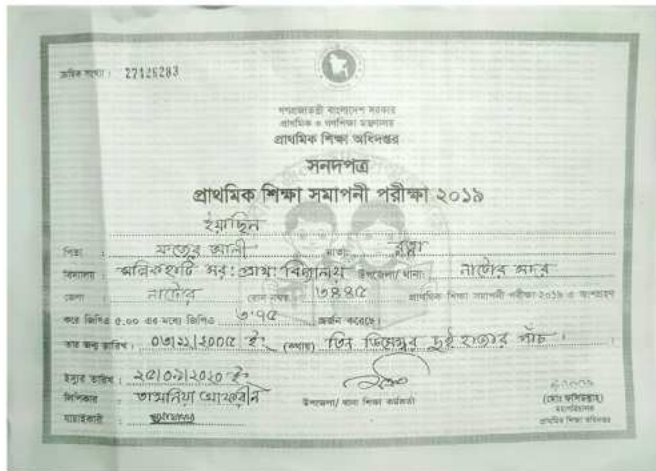 ক্রমিক সংখ্যা : 27126283
গণপ্রজাতন্ত্রী বাংলাদেশ সরকার
প্রাথমিক ও গণশিক্ষা মন্ত্রণালয়
প্রাথমিক শিক্ষা অধিদপ্তর
সনদপত্র
প্রাথমিক শিক্ষা সমাপনী পরীক্ষা ২০১৯
ইয়াছিন
পিতা : ফজের আলী মাতা: রত্না
বিদ্যালয় : সর: প্রাথ: বিদ্যালয় উপজেলা/ থানা: নাটোর সদর
জেলা : নাটোর রোল নম্বর ৩৪৪৫ প্রাথমিক শিক্ষা সমাপনী পরীক্ষা ২০১৯ এ অংশগ্রহণ
করে জিপিএ ৫.০০ এর মধ্যে জিপিএ ৩.৭৫ অর্জন করেছে।
তার জন্ম তারিখ : ০৩/১২/২০০৫ ইং (কথায়) তিন ডিসেম্বর দুই হাজার পাঁচ ।
ইস্যুর তারিখ : ২৫/০১/২০২০ ইং
লিপিকার : তাসনিয়া আফরীন উপজেলা/ থানা শিক্ষা কর্মকর্তা
যাচাইকারী :
(মোঃ ফসিউল্লাহ)
মহাপরিচালক
প্রাথমিক শিক্ষা অধিদপ্তর